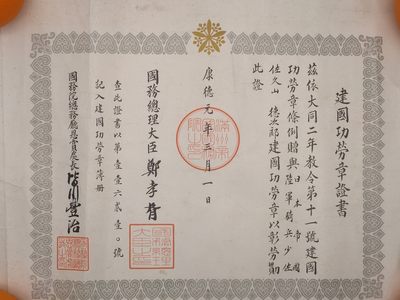 建國功勞章證書
茲依大同二年教令第十一號建國
功勞章條例贈與日本帝國陸軍騎兵少佐
佐久山德次郎建國功勞章以彰勞勳
此證
康德元年三月一日
國務總理大臣鄭孝胥
查此證書以第壹壹六貳壹〇號
記入建國功勞章簿冊
國務院總務廳恩賞處長